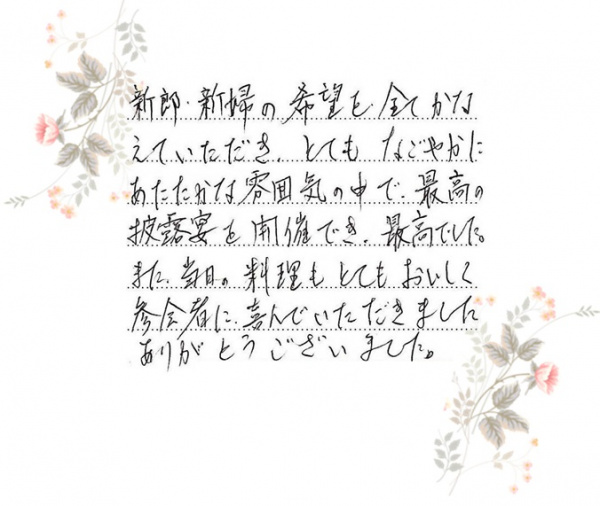 新郎・新婦の希望を全てかな
えていただき、とても なごやかに
あたたかな雰囲気の中で、最高の
披露宴を開催でき、最高でした。
また、当日の料理もとてもおいしく
参会者に、喜んでいただきました
ありがとうございました。